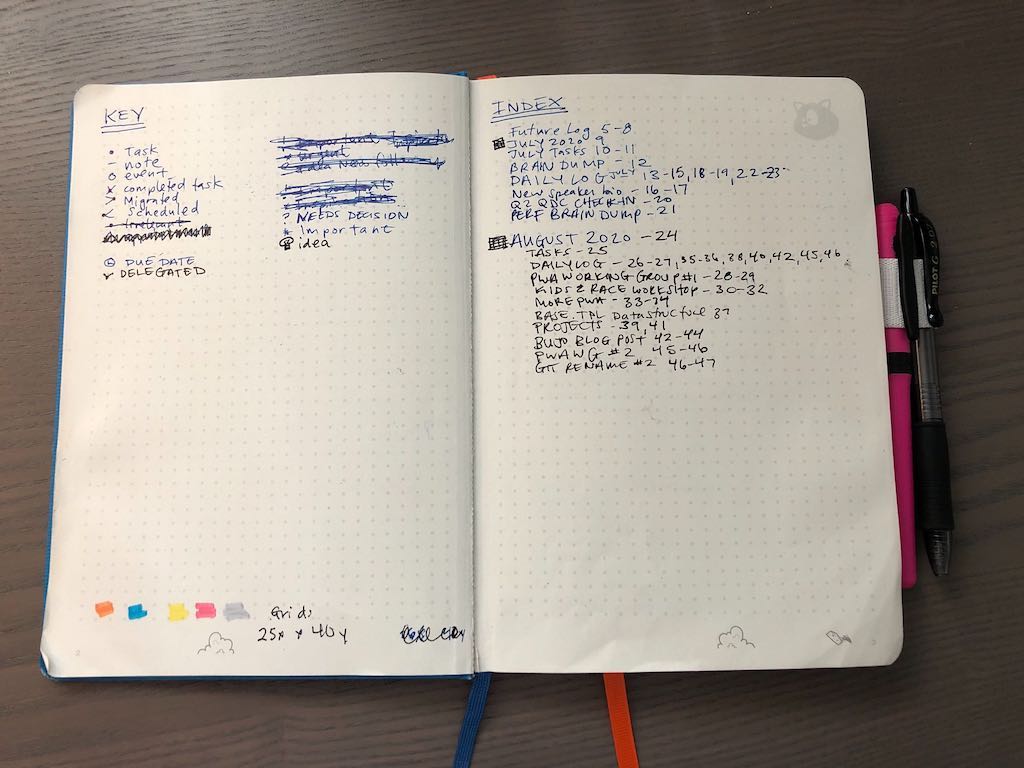 KEY
• Task
– note
o event
x completed task
> Migrated
< Scheduled
• Irrelevant
DUE DATE
DELEGATED
? NEEDS DECISION
* Important
idea
Grid:
25x x 40y
2
INDEX
Future Log 5-8
JULY 2020 9
JULY TASKS 10-11
BRAIN DUMP - 12
DAILY LOG JULY 13-15, 18-19, 22-23
New speaker bio - 16-17
Q2 QDC CHECK IN - 20
PERF BRAIN DUMP - 21
AUGUST 2020 - 24
TASKS - 25
DAILY LOG - 26-27, 35-36, 38, 40, 42, 45, 46
PWA WORKING GROUP #1 - 28-29
KIDS & RACE WORKSHOP - 30-32
MORE PWA - 33-34
BASE.TPL Datastructure 37
PROJECTS - 39, 41
BUJO BLOG POST 42-44
PWA WG #2 45-46
GIT RENAME #2 46-47
3
PILOT G-2